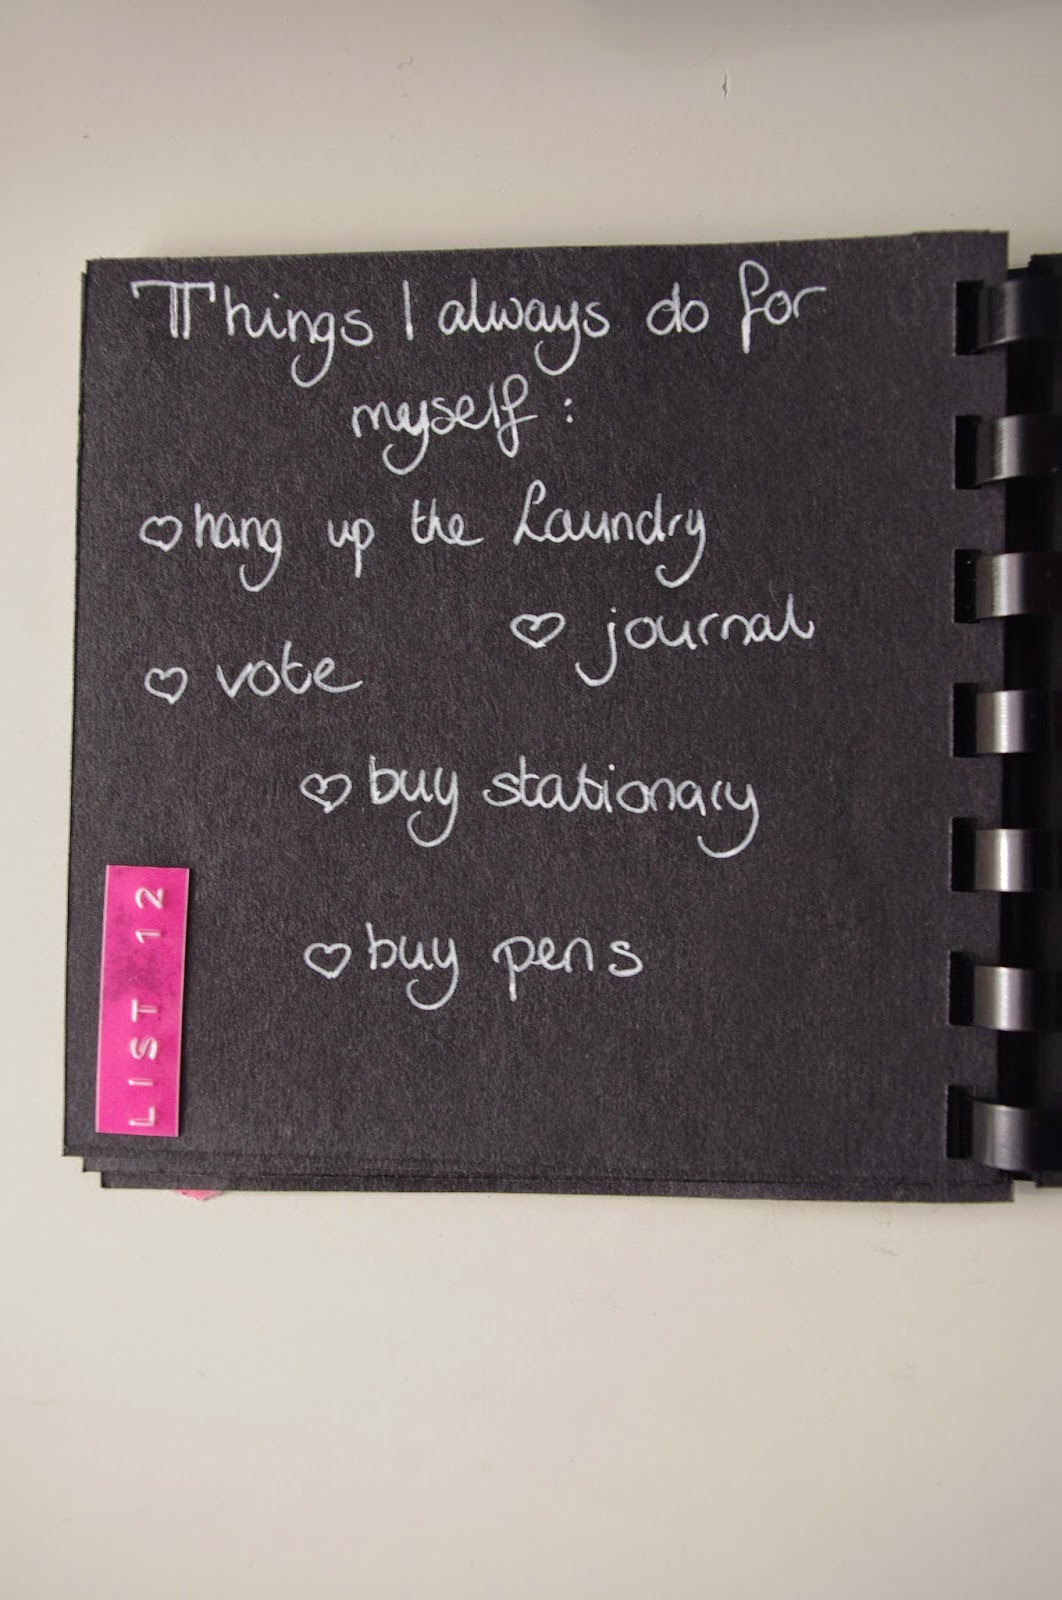 Things I always do for
myself:
♡ hang up the Laundry
♡ journal
♡ vote
♡ buy stationary
♡ buy pens
LIST 12